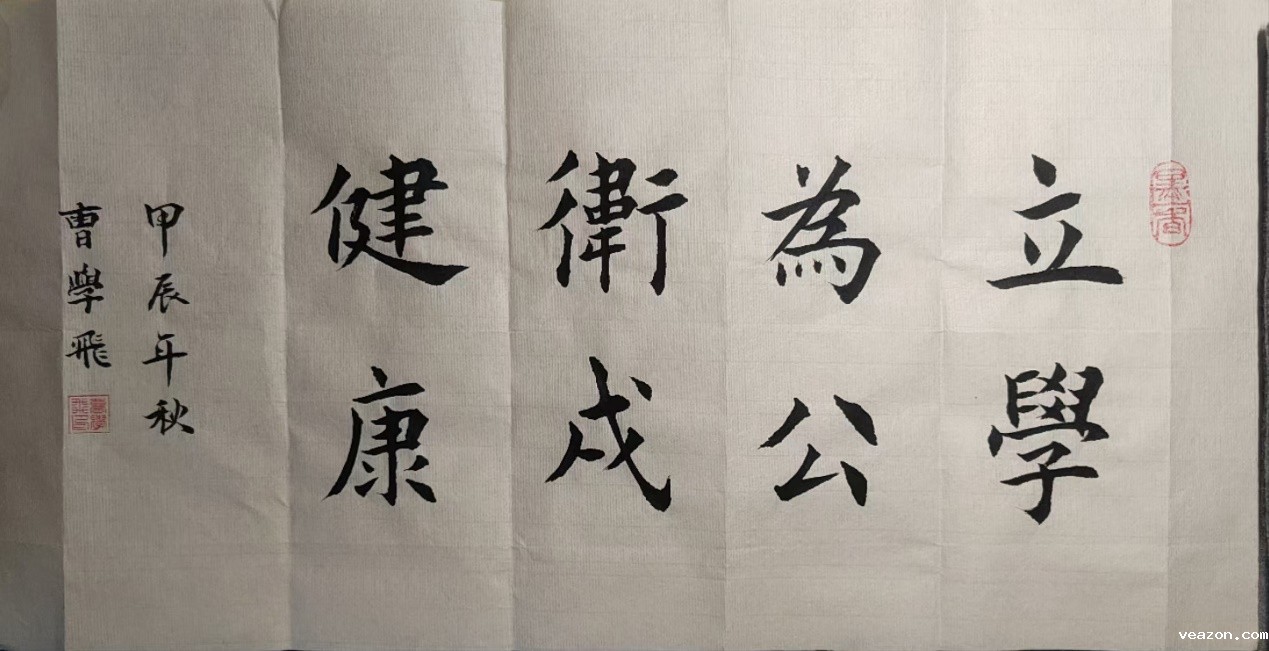 立學
為公
衛戍
健康
甲辰年秋
曹學飛
veazon.com